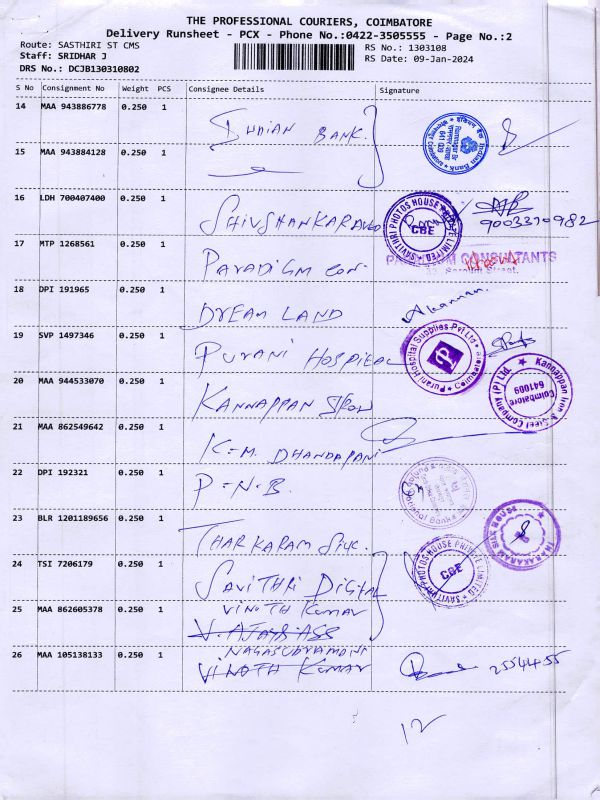 THE PROFESSIONAL COURIERS, COIMBATORE
Delivery Runsheet - PCX - Phone No.:0422-3505555 - Page No.:2
Route: SASTHIRI ST CMS
RS No.: 1303108
Staff: SRIDHAR J
RS Date: 09-Jan-2024
DRS No.: DCJB130310802
S No Consignment No Weight PCS Consignee Details Signature
14 MAA 943886778 0.250 1 INDIAN BANK
15 MAA 943884128 0.250 1
16 LDH 700407400 0.250 1 SHIVSHANKARAVLO 9003370982
SAVITHRI PHOTOS HOUSE PRIVATE LIMITED CBE
17 MTP 1268561 0.250 1 PARADIGM CON. CONSULTANTS
18 DPI 191965 0.250 1 DREAM LAND
19 SVP 1497346 0.250 1 PURANI HOSPITAL
Purani Hospital Supplies Pvt Ltd Coimbatore
20 MAA 944533070 0.250 1 KANNAPPAN
Kannappan Iron & Steel Company (P) Ltd. Coimbatore 641009
21 MAA 862549642 0.250 1 K.M. DHANDAPANI
22 DPI 192321 0.250 1 P-N-B.
23 BLR 1201189656 0.250 1 THARKARAM SILK.
THARAKARAM SILK HOUSE
24 TSI 7206179 0.250 1 SAVITHRI DIGITAL
SAVITHRI PHOTOS HOUSE PRIVATE LIMITED CBE
VINOTH KUMAR
25 MAA 862605378 0.250 1
NAGASUBRAMONI
26 MAA 105138133 0.250 1 VINOTH KUMAR 2554455
12